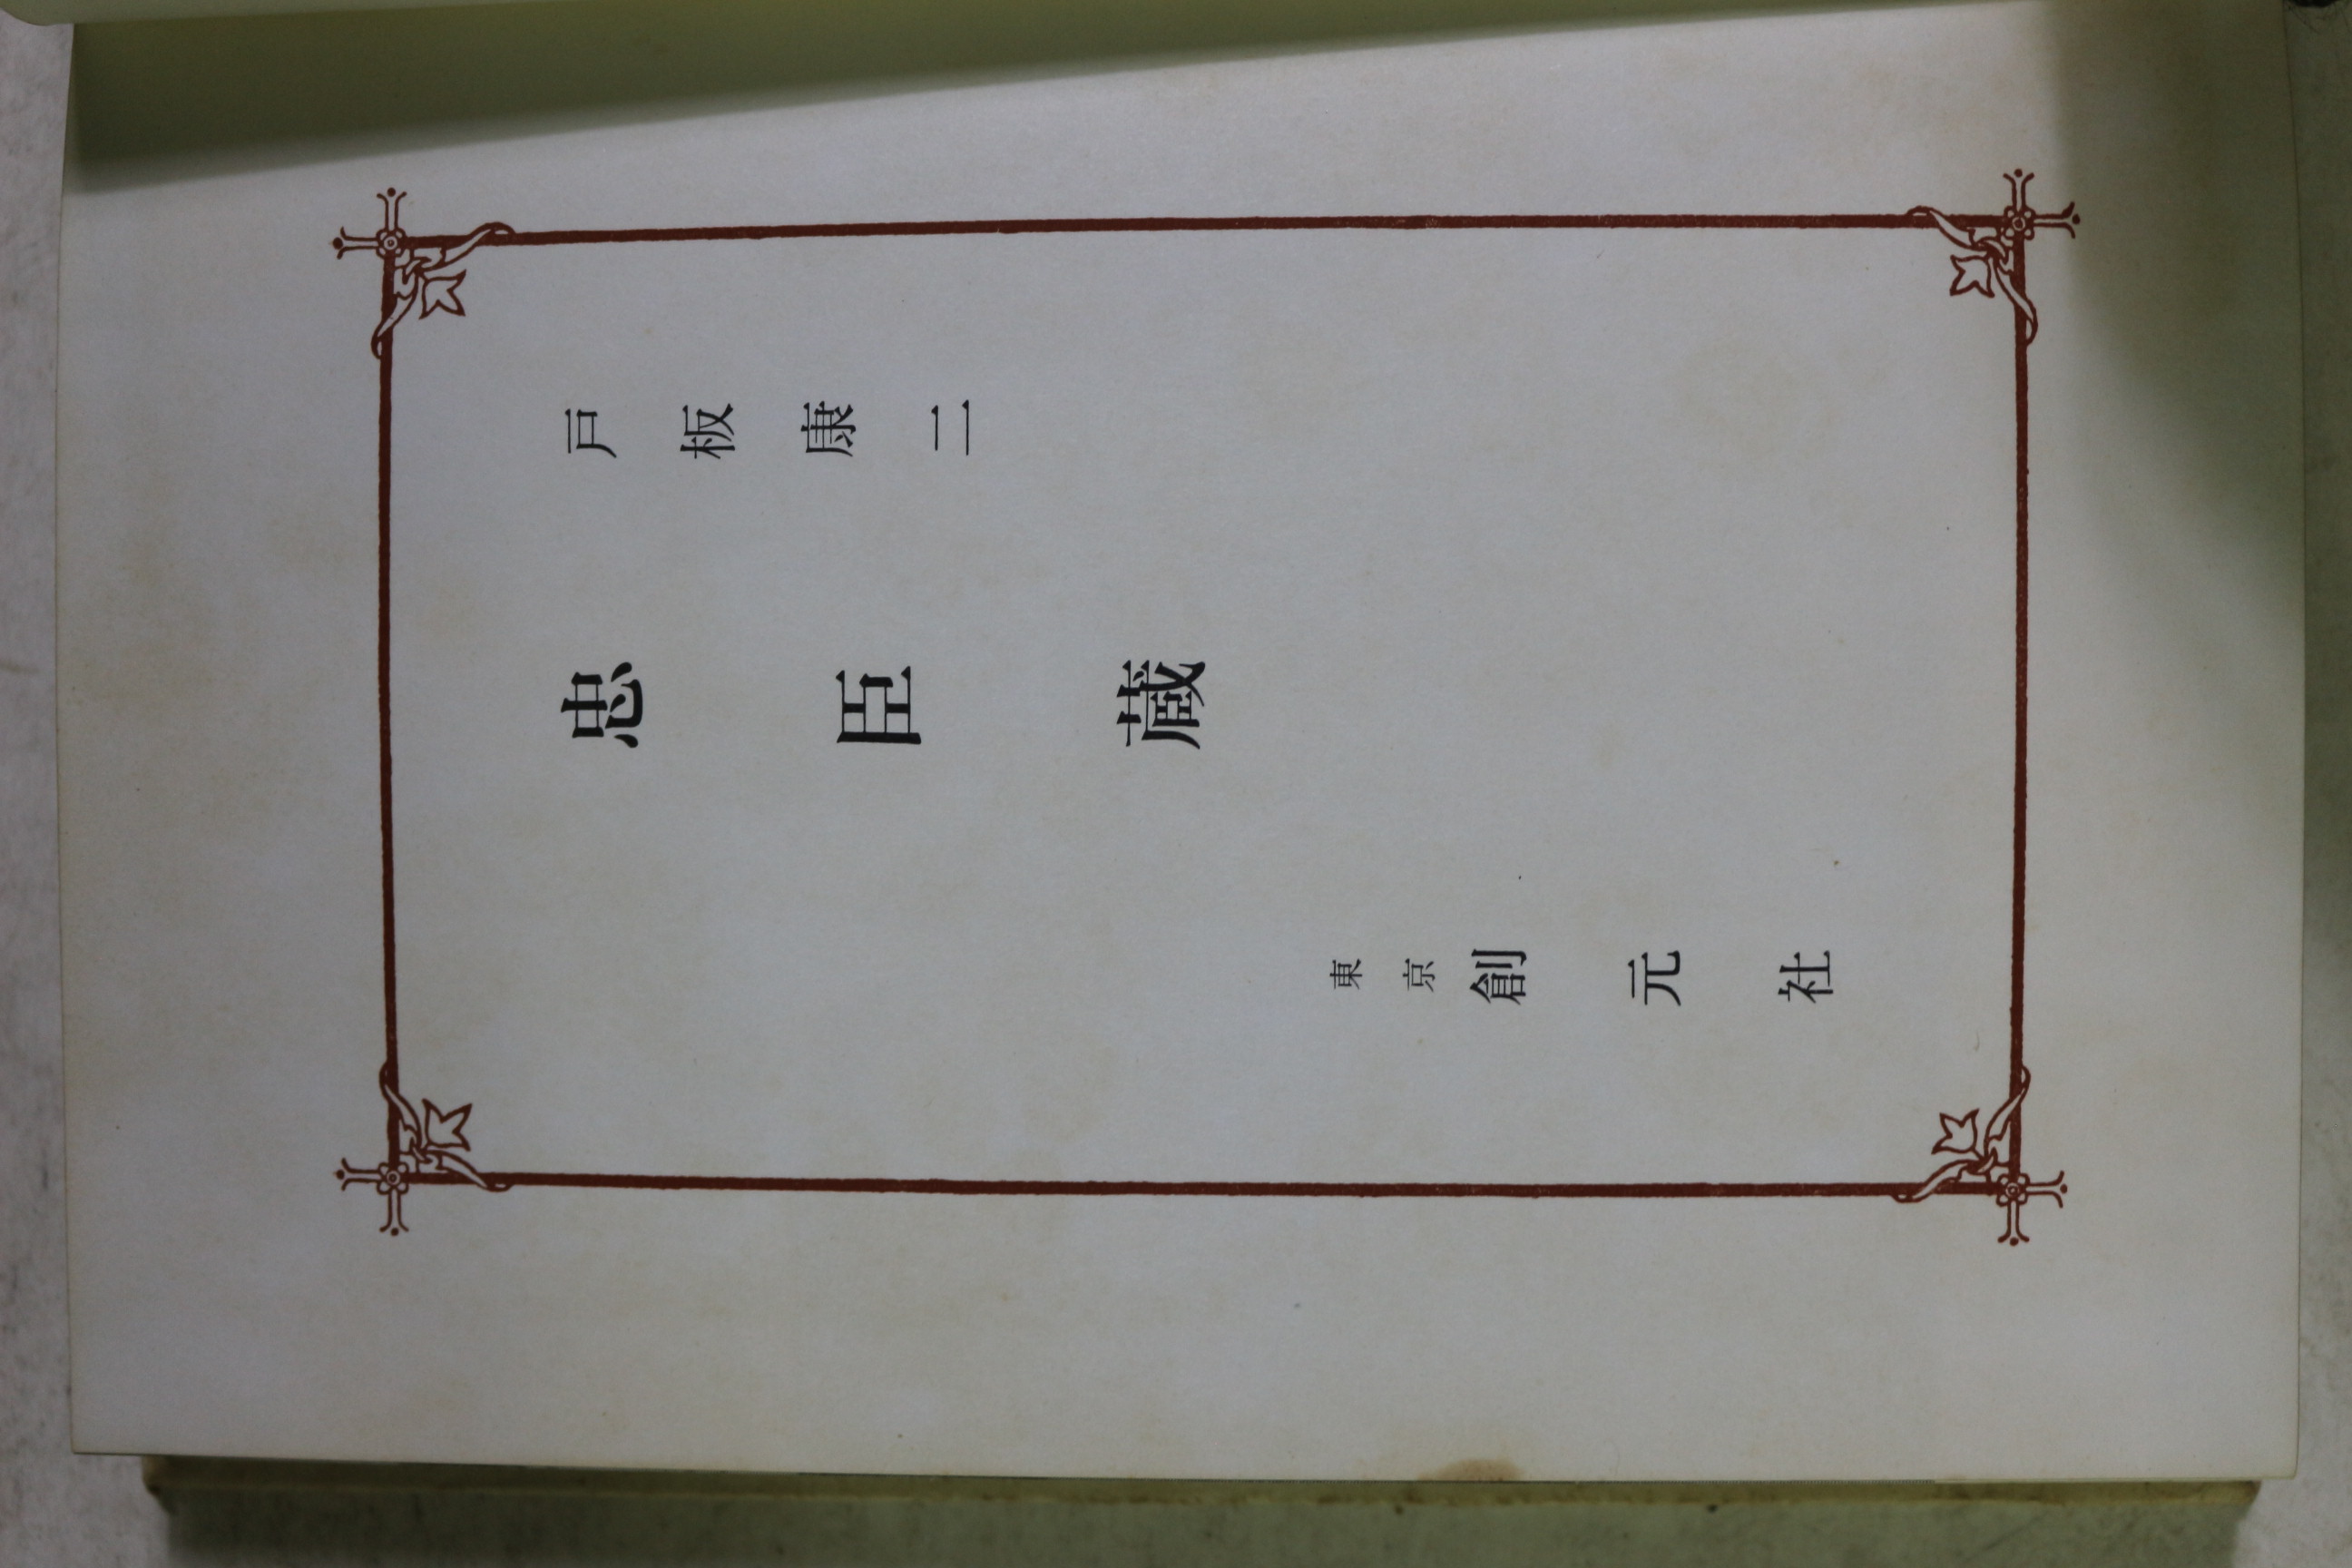 戸板康二
忠臣蔵
東京創元社